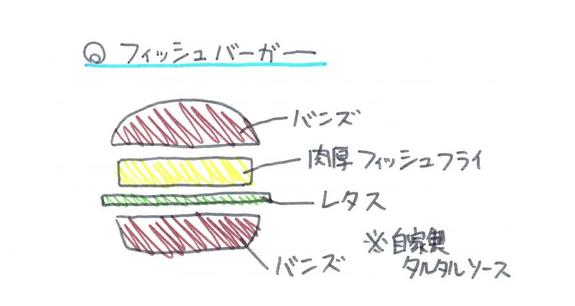 ◎ フィッシュバーガー
バンズ
肉厚フィッシュフライ
レタス
バンズ
※自家製
タルタルソース